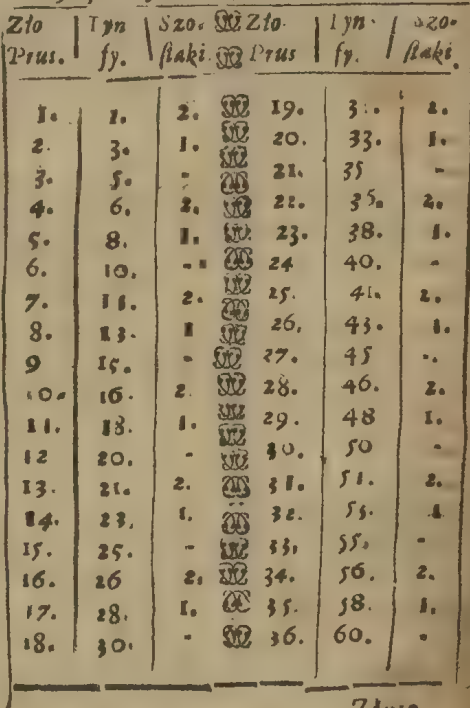 Zło Tyn Szo. Zło. Tyn. Szo-
Prus. fy. ſtaki. Prus fy. ſtaki.
1. 1. 2. 19. 3 . 2.
2. 3. 1. 20. 33. 1.
3. 5. - 21. 35 -
4. 6. 2. 22. 35. 2.
5. 8. 1. 23. 38. 1.
6. 10. - 24 40. -
7. 11. 2. 25. 41. 2.
8. 13. 1 26. 43. 1.
9 15. - 27. 45 -.
10. 16. 2. 28. 46. 2.
11. 18. 1. 29. 48 1.
12 20. - 30. 50 -
13. 21. 2. 31. 51. 2.
14. 23. 1. 32. 53. 1
15. 25. - 33. 55. -
16. 26 2. 34. 56. 2.
17. 28. 1. 35. 58. 1.
18. 30. - 36. 60. -